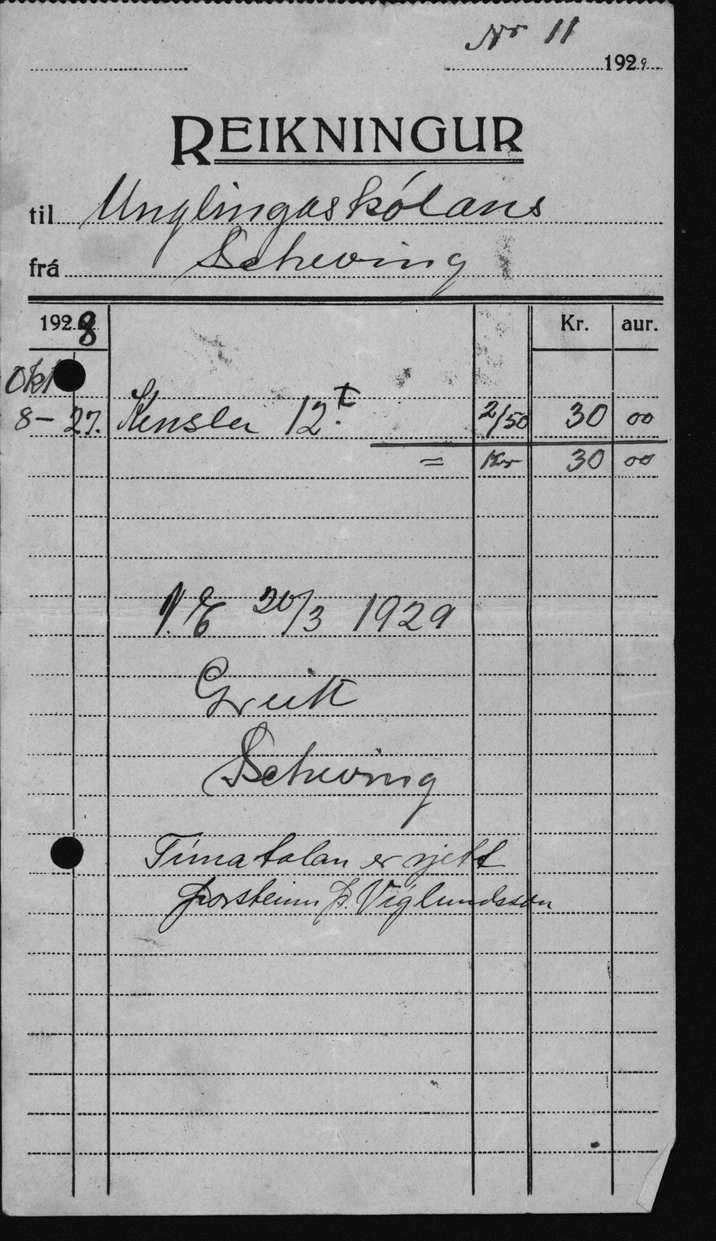 No 11
1929
REIKNINGUR
til Unglingaskólans
frá Scheving
1928 Kr. aur.
Okt
8-27. Kensla 12 t. 2/50 30 00
= Kr 30 00
V.E 20/3 1929
Greitt
Scheving
Tímatalan er rjett
Þorsteinn Þ. Víglundsson